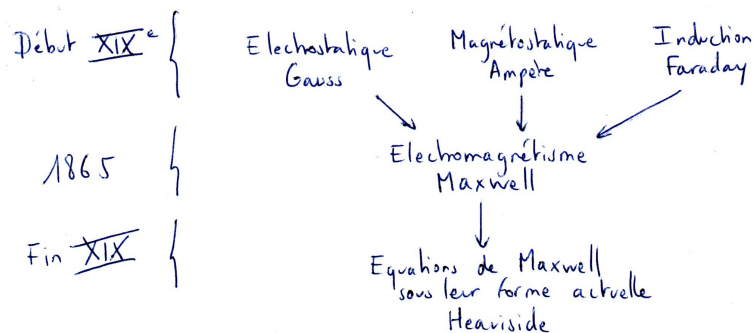 Début XIXe
Electrostatique
Gauss
Magnétostatique
Ampère
Induction
Faraday
1865
Electromagnétisme
Maxwell
Fin XIX
Equations de Maxwell
sous leur forme actuelle
Heaviside